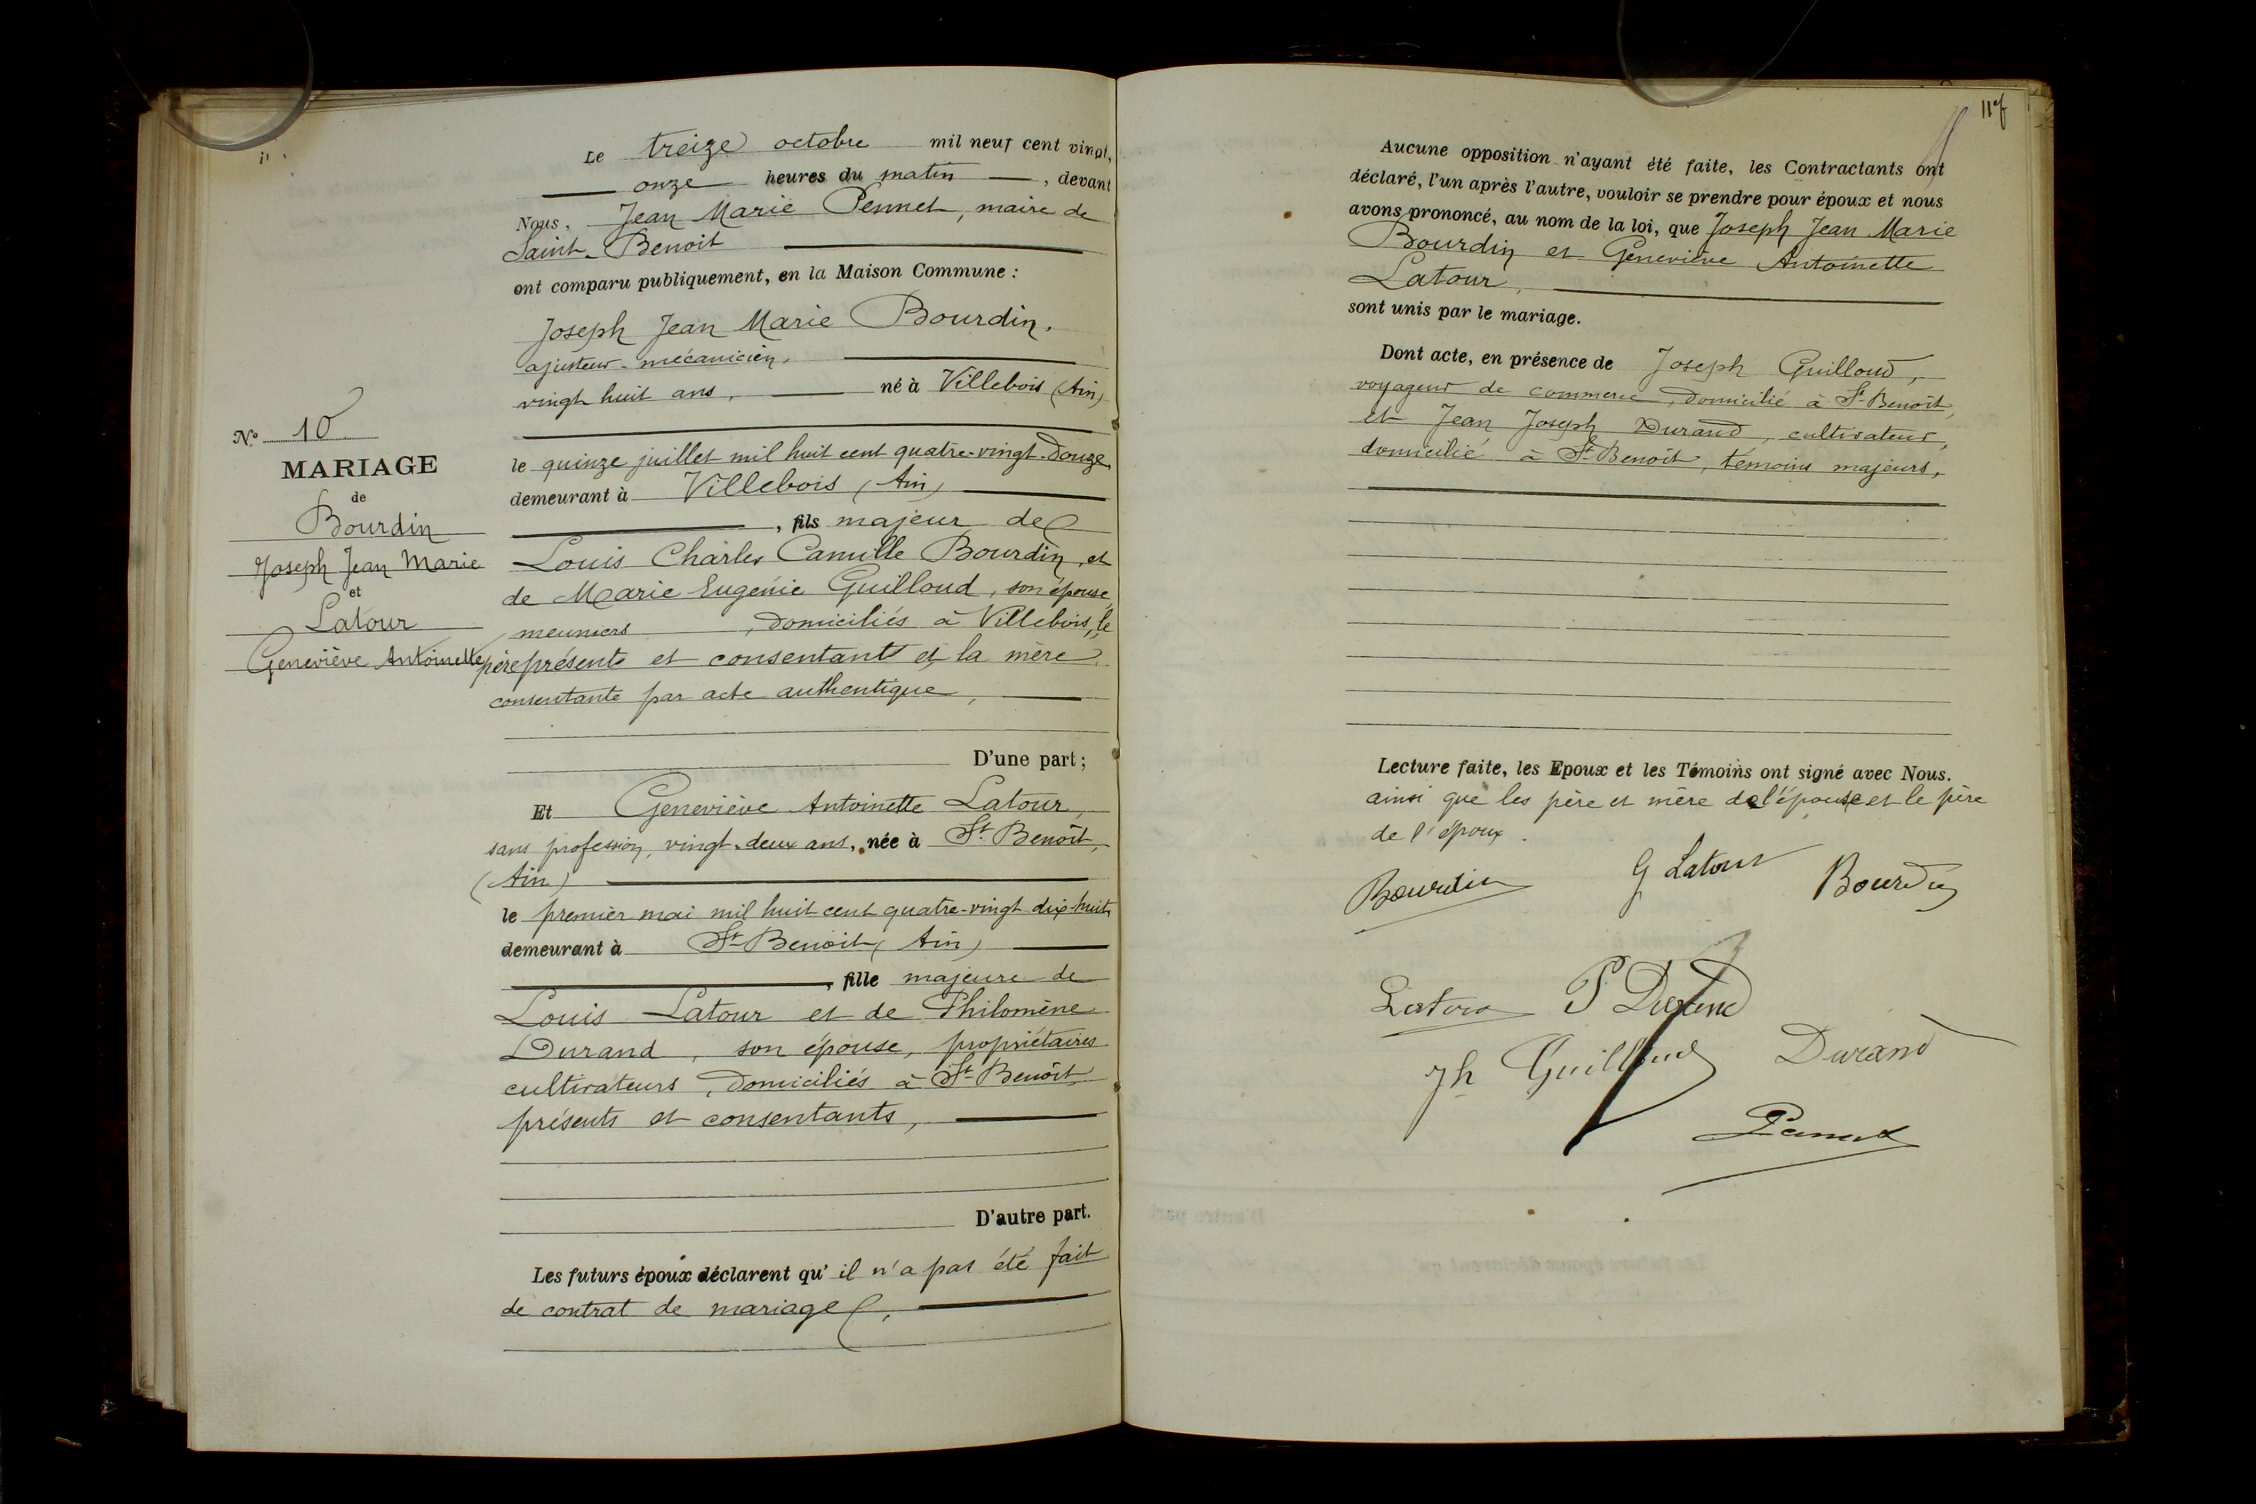 Le treize octobre mil neuf cent vingt,
onze heures du matin, devant
Nous, Jean Marie Pennet, maire de
Saint-Benoit
ont comparu publiquement, en la Maison Commune :
Joseph Jean Marie Bourdin,
ajusteur-mécanicien,
vingt huit ans, né à Villebois (Ain)
le quinze juillet mil huit cent quatre-vingt-douze
demeurant à Villebois (Ain)
, fils majeur de
Louis Charles Camille Bourdin, et
de Marie Eugénie Guilloud, son épouse,
meuniers, domiciliés à Villebois, le
père présent et consentant et la mère
consentante par acte authentique,
D'une part ;
N° 10
MARIAGE
de
Bourdin
Joseph Jean Marie
et
Latour
Geneviève Antoinette
Et Geneviève Antoinette Latour,
sans profession, vingt-deux ans, née à St Benoît,
(Ain)
le premier mai mil huit cent quatre-vingt dix-huit,
demeurant à St Benoit (Ain)
, fille majeure de
Louis Latour et de Philomène
Durand, son épouse, propriétaires
cultivateurs, domiciliés à St Benoît,
présents et consentants,
D'autre part.
Les futurs époux déclarent qu'il n'a pas été fait
de contrat de mariage,
Aucune opposition n'ayant été faite, les Contractants ont
déclaré, l'un après l'autre, vouloir se prendre pour époux et nous
avons prononcé, au nom de la loi, que Joseph Jean Marie
Bourdin et Geneviève Antoinette
Latour,
sont unis par le mariage.
Dont acte, en présence de Joseph Guilloud,
voyageur de commerce, domicilié à St Benoît,
et Jean Joseph Durand, cultivateur,
domicilié à St Benoît, témoins majeurs,
Lecture faite, les Epoux et les Témoins ont signé avec Nous.
ainsi que les père et mère de l'épouse et le père
de l'époux.
Bourdin G Latour Bourdin
Latour P Durand
Jh Guilloud Durand
Pennet